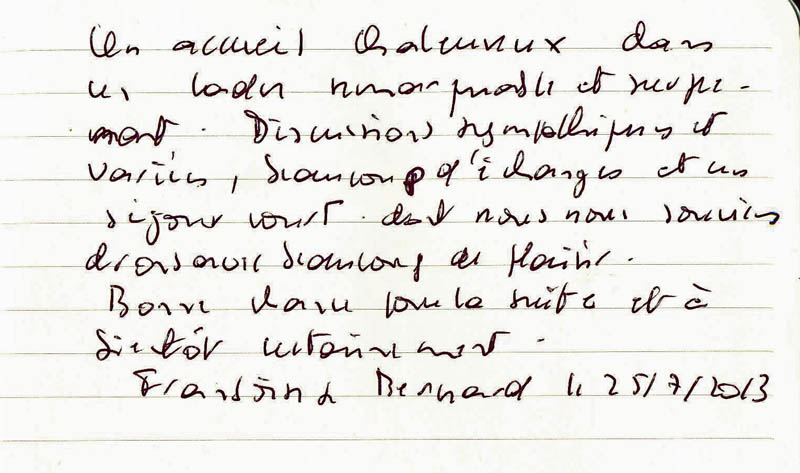 Un accueil chaleureux dans
un cadre remarquable et surpre-
nant. Discussions sympathiques et
variées, beaucoup d'échanges et un
séjour court dont nous nous souvien
drons avec beaucoup de plaisir.
Bonne chance pour la suite et à
bientôt certainement.
Bernard le 25/7/2013